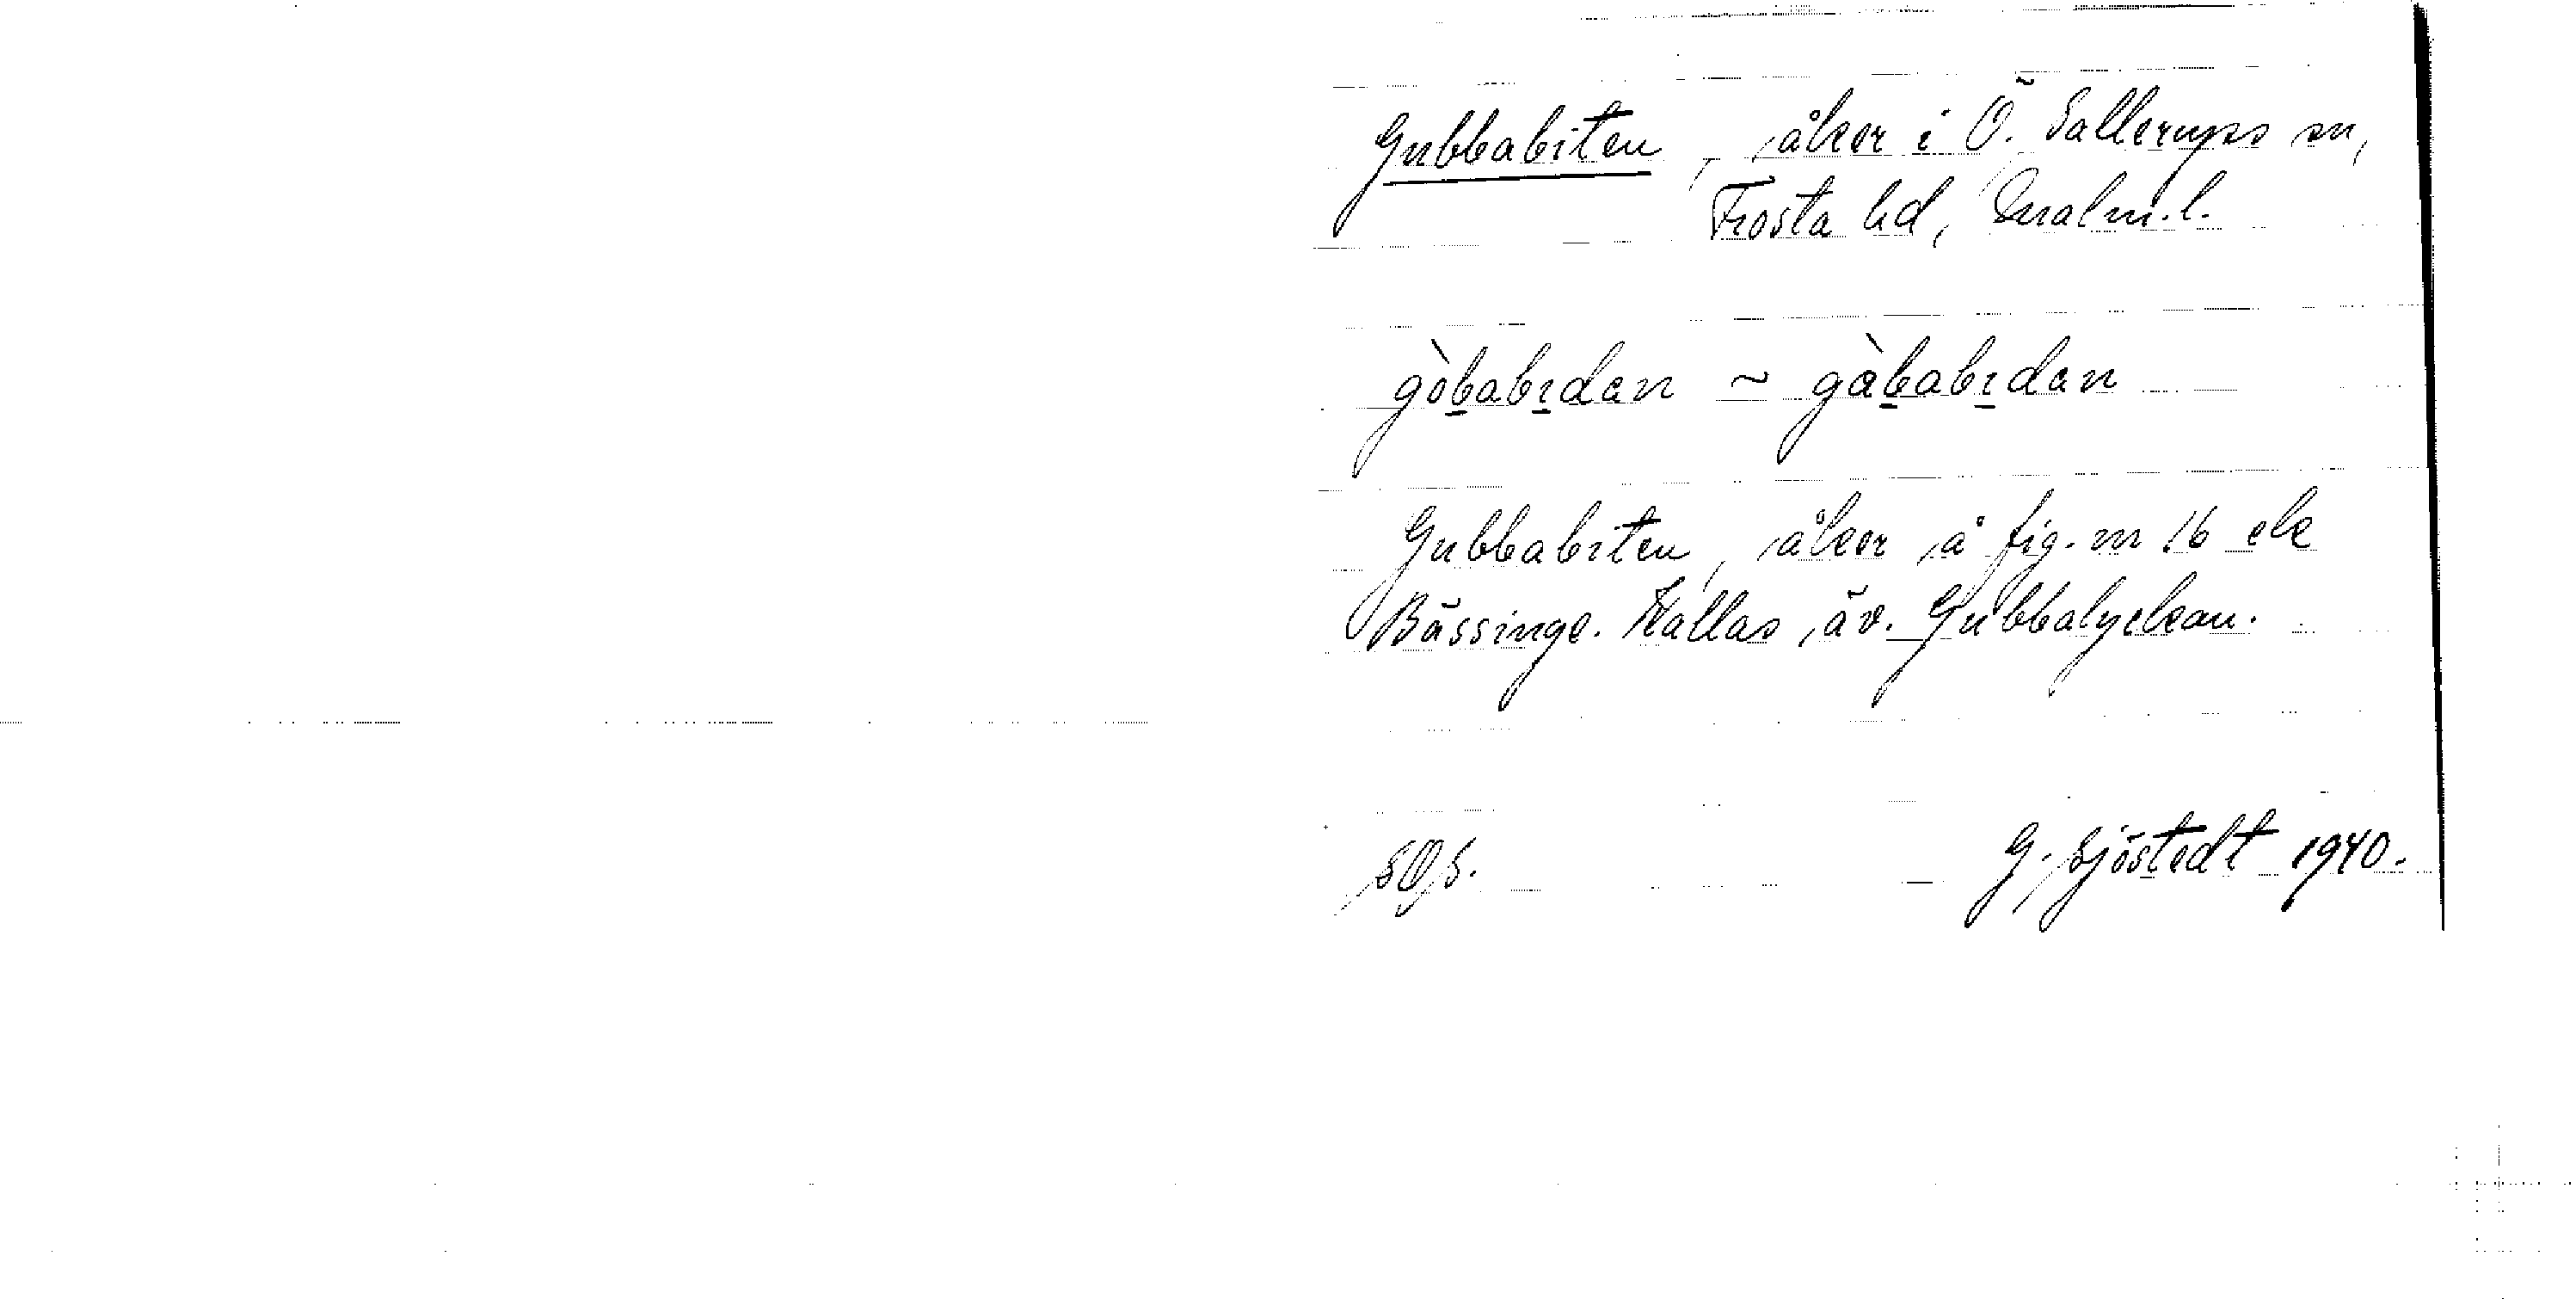 Gubbabiten, åker i Ö. Sallerups sn,
Frosta hd, Malm.l.
gòbabıdan ~ gàbabıdan
Gubbabiten, åker å fig. nr 16 ek
Bässinge. Kallas äv. Gubbalyckan.
G. Sjöstedt 1940.